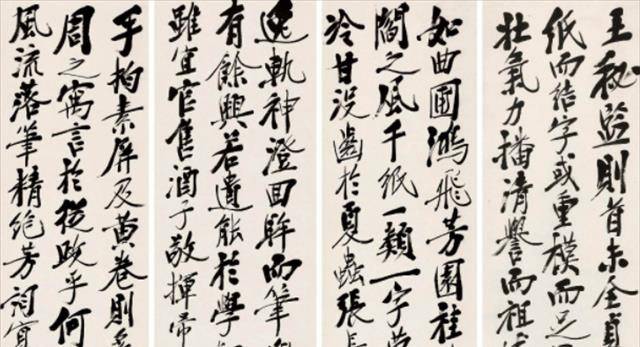 王秘監則首末全貞
纸而結字或重模而足
壯氣力播清譽而祖
如曲圃鴻飛芳園桂
閬之風千紙一類一字
冷甘没齒於夏蟲張
逸軌神澄回眸而筆
有餘興若遺能於學
雖宜官售酒子敬揮帚
乎拘素屏及黄卷則
周之寓言於從政乎何
風流落筆精絕芳詞寡